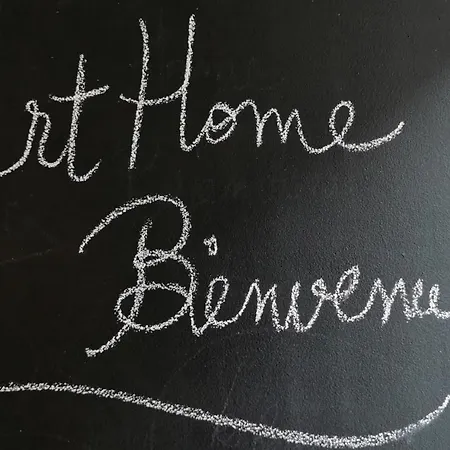 rt Home
Bienvenue